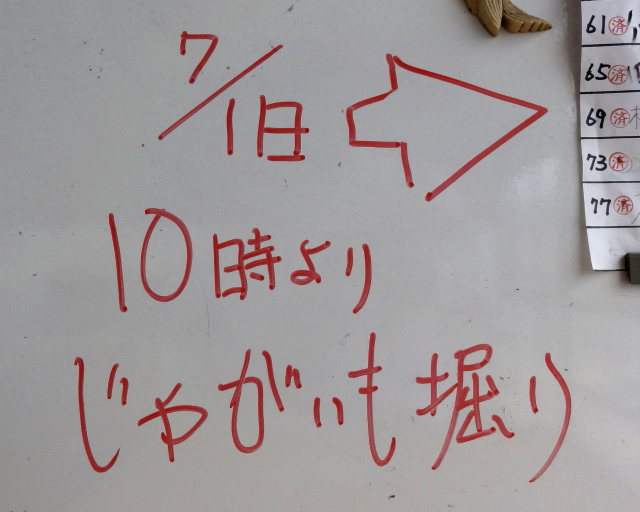 7/1日
10時より
じゃがいも掘り
61 済
65 済
69 済
73 済
77 済